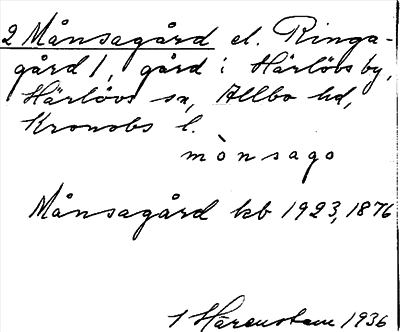 2 Månsagård el. Ringa-
gård 1, gård i Härlövs by,
Härlövs sn, Allbo hd,
Kronobs l.
mònsago
Månsagård kb 1923, 1876
1 Härenstam 1936